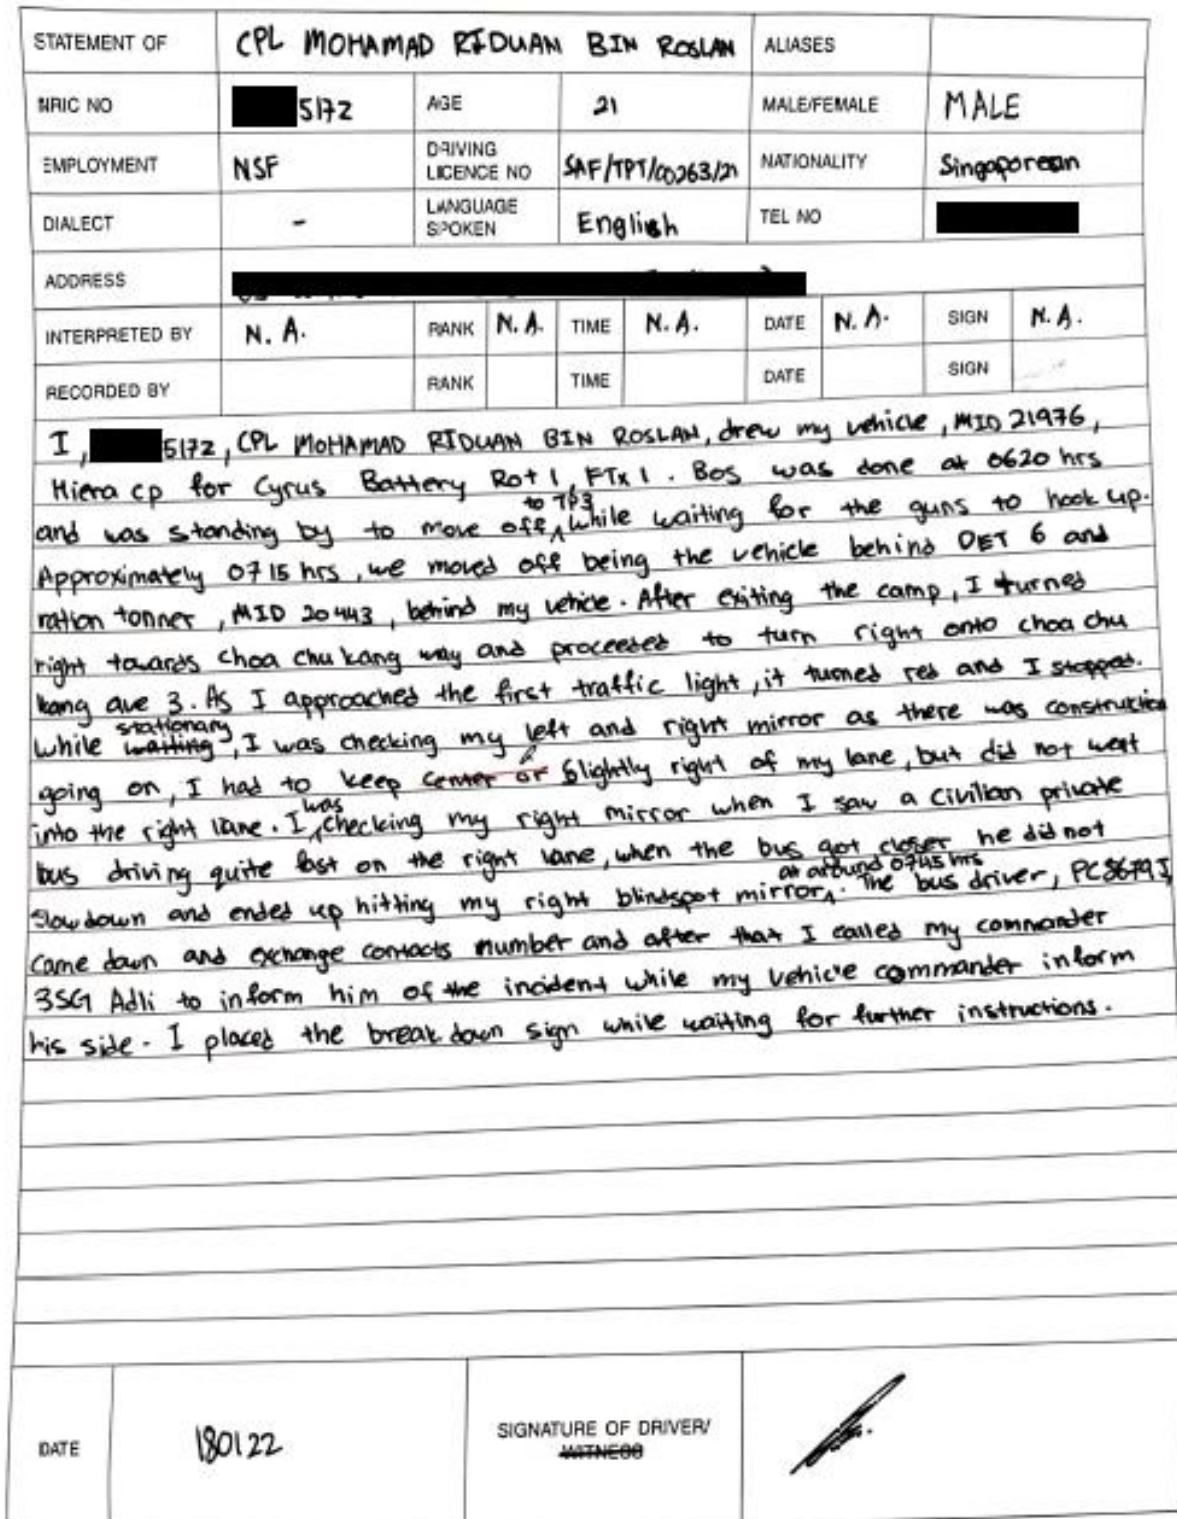 STATEMENT OF CPL MOHAMAD RIDUAN BIN ROSLAN ALIASES
NRIC NO 517Z AGE 21 MALE/FEMALE MALE
EMPLOYMENT NSF DRIVING LICENCE NO SAF/TPT/00263/21 NATIONALITY Singaporean
DIALECT - LANGUAGE SPOKEN English TEL NO
ADDRESS
INTERPRETED BY N.A. RANK N.A. TIME N.A. DATE N.A. SIGN N.A.
RECORDED BY RANK TIME DATE SIGN
I, 517Z, CPL MOHAMAD RIDUAN BIN ROSLAN, drew my vehicle, MID 21976,
Hiera cp for Cyrus Battery Rot 1, FTx 1. Bos was done at 0620 hrs
and was standing by to move off to TP3 while waiting for the guns to hook up.
Approximately 0715 hrs, we moved off being the vehicle behind DET 6 and
ration tonner, MID 20443, behind my vehicle. After exiting the camp, I turned
right towards choa chu kang way and proceeded to turn right onto choa chu
kang ave 3. As I approached the first traffic light, it turned red and I stopped.
while waiting stationary, I was checking my left and right mirror as there was construction
going on, I had to keep center or slightly right of my lane, but did not went
into the right lane. I was checking my right mirror when I saw a civilian private
bus driving quite fast on the right lane, when the bus got closer he did not
slow down and ended up hitting my right blindspot mirror at around 0745 hrs. The bus driver, PC8679J,
came down and exchange contacts number and after that I called my commander
3SG Adli to inform him of the incident while my vehicle commander inform
his side. I placed the break down sign while waiting for further instructions.
DATE 180122 SIGNATURE OF DRIVER/ WITNESS